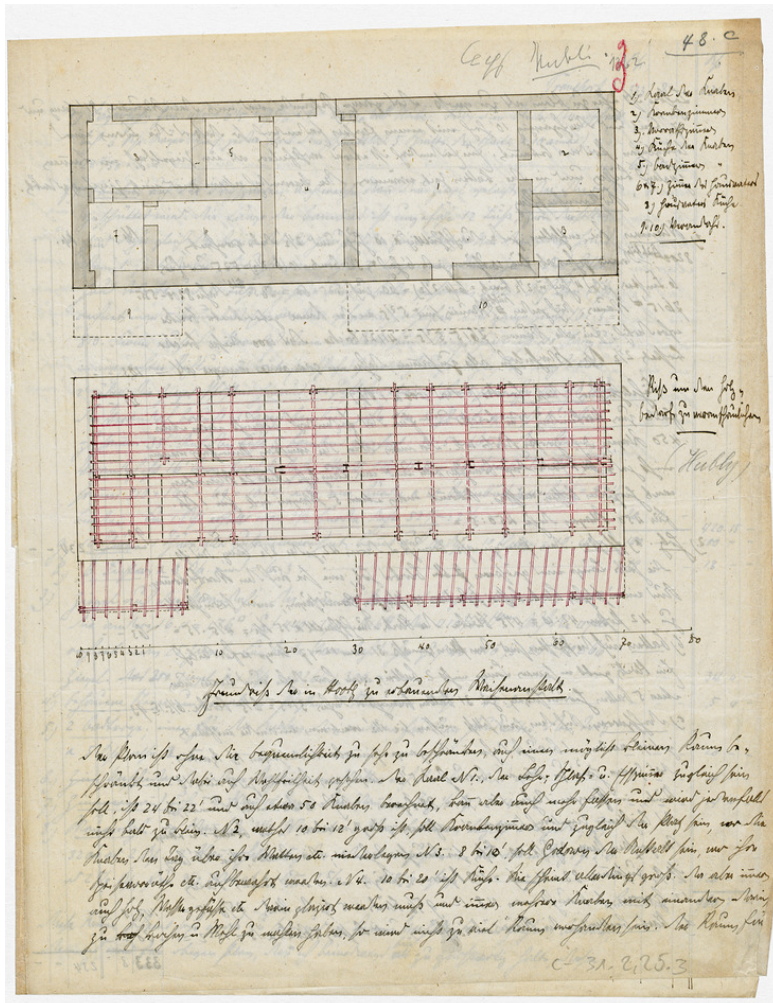 48. C
Copp Hubli
1) Saal der Knaben
2) Krankenzimmer
3) Vorrathszimmer
4) Küche der Knaben
5) Badzimmer "
6 & 7) Zimmer des Hausvaters
8) Hausvaters Küche
9. 10) Verandahs.
5
2
7
3
9
10
Riß um den Holz-
bedarf zu veranschaulichen
(Hubly)
10 9 8 7 6 5 4 3 2 1 10 20 30 40 50 60 70 80
Grundriß des in Hoobly zu erbauenden Waisenanstalt.
Der Plan ist ohne die Bequemlichkeit zu sehr zu beschränken, auf einen möglichst kleinen Raum be-
schränkt und dabei auf Wohlfeilheit gesehen. Der Saal No 1., der Lehr- Schlaf- u. Esszimmer zugleich sein
soll, ist 24 bei 22' und auf etwa 50 Knaben berechnet, kann aber auch mehr fassen und wird jedenfalls
nicht bald zu klein. N 2, welche 10 bei 12' groß ist, soll Krankenzimmer und zugleich der Platz sein, wo die
Knaben den Tag über ihre Matten etc. niederlegen. N 3. 8 bei 10' soll Godown der Anstalt sein, wo ihre
Speisevorräthe etc. aufbewahrt werden. N 4. 10 bei 20' ist Küche. Sie scheint allerdings groß. Da aber immer
auch Holz, Wassergefäße etc. darin plazirt werden muß und immer mehrere Knaben mit einander darin
zu kochen u. Mehl zu mahlen haben, so wird nicht zu viel Raum vorhanden sein. Der Raum für
C-31. 2, 25. 3